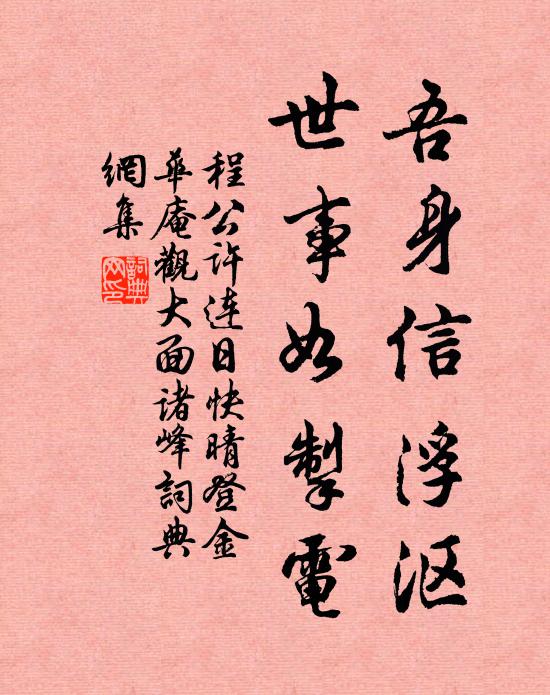 吾身信浮沤
世事如掣電
程公许连日快晴登金
華庵觀大面诸峰詞典
網集
詞典
网印